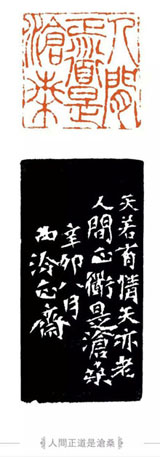 人間
正道是
滄桑
天若有情天亦老
人間正衜是滄桑
辛卯八月
西泠齋
人間正道是滄桑